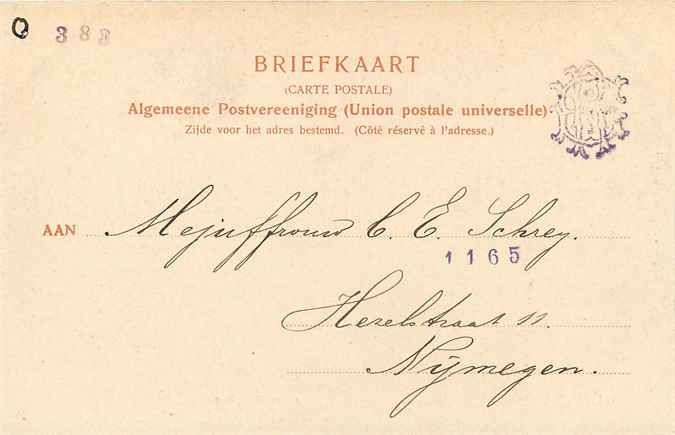 Q 383
BRIEFKAART
(CARTE POSTALE)
Algemeene Postvereeniging (Union postale universelle)
Zijde voor het adres bestemd. (Côté réservé à l'adresse.)
AAN Mejuffrouw C. E. Schrey.
1165
Hezelstraat 11.
Nijmegen.